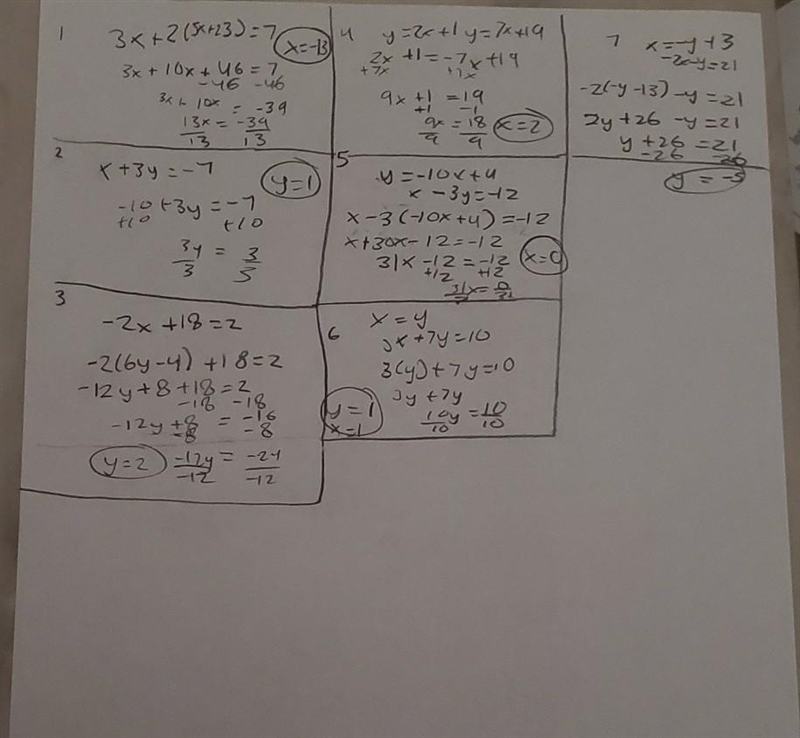 1
3x+2(5x+23)=7
x=-13
3x+10x+46=7
-46 -46
3x+10x = -39
13x = -39
13 13
2
x+3y=-7
y=1
-10+3y=-7
+10 +10
3y = 3
3 3
3
-2x+18=2
-2(6y-4)+18=2
-12y+8+18=2
-18 -18
-12y+8 = -16
-8 -8
y=2
-12y = -24
-12 -12
4
y=2x+1 y=7x+19
2x+1=-7x+19
+7x +7x
9x+1=19
+1 -1
9x = 18
9 9
x=2
5
y=-10x+4
x-3y=-12
x-3(-10x+4)=-12
x+30x-12=-12
31x-12=-12
+12 +12
x=0
31x=0
31
6
x=y
3x+7y=10
3(y)+7y=10
3y+7y
10y=10
10 10
y=1
x=1
7
x=-y+3
-2x-y=21
-2(-y-13)-y=21
2y+26-y=21
y+26=21
-26 -26
y=-5